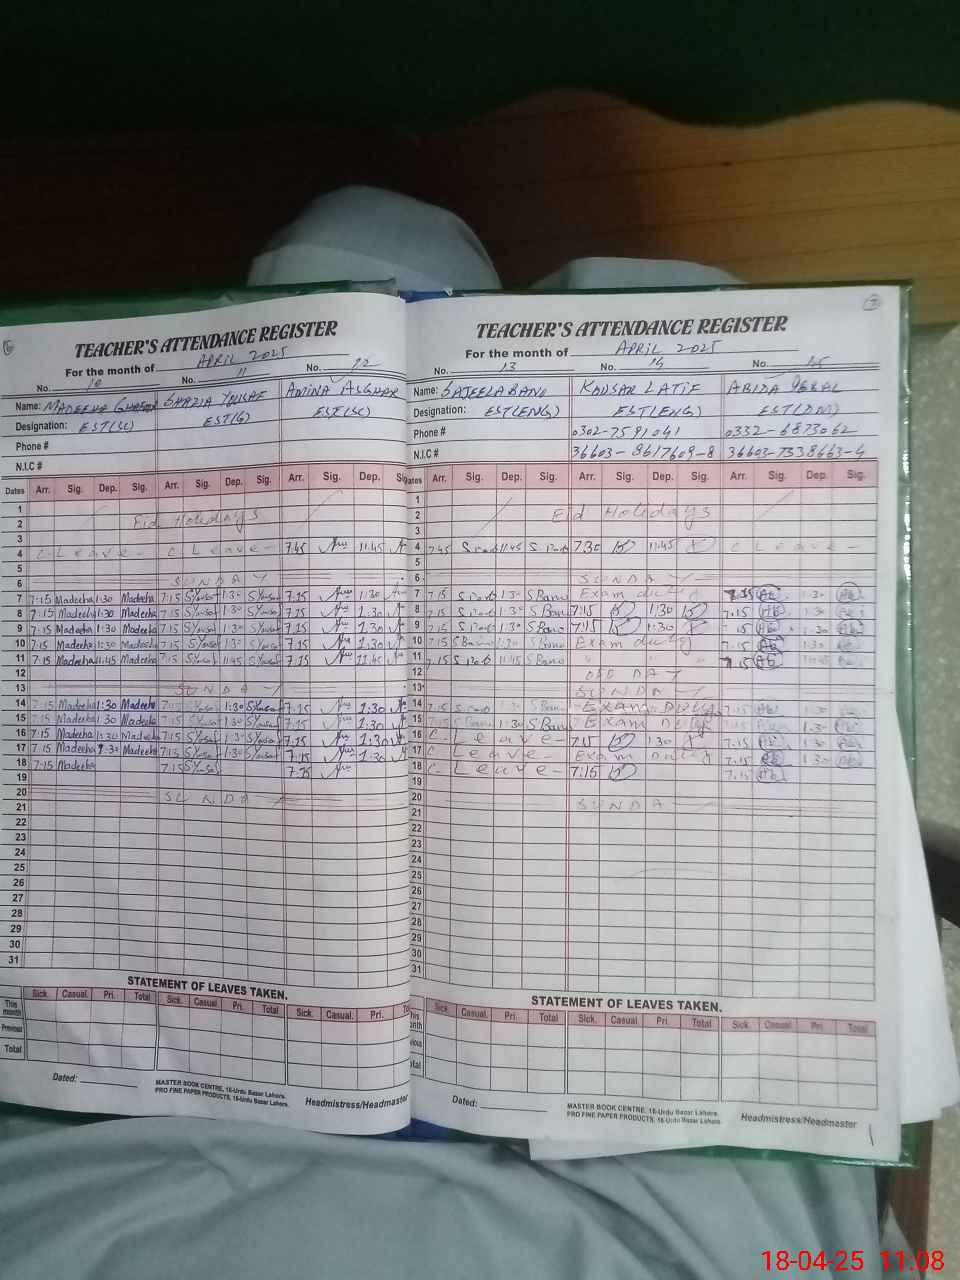 TEACHER'S ATTENDANCE REGISTER
For the month of APRIL 2025
No. 10 No. 11 No. 12
Name: MADEEHA SHAZIA YOUSAF AMINA ASGHAR
Designation: EST(SC) EST(G) EST(SC)
Phone #
N.I.C #
Dates Arr. Sig. Dep. Sig. Arr. Sig. Dep. Sig. Arr. Sig. Dep.
1
2 Eid Holidays
3
4 C Leave - C Leave - 7.45 11.45
5
6 SUNDAY
7 7:15 Madeeha 1:30 Madeeha 7:15 SYousaf 1:30 SYousaf 7.15 1.30
8 7:15 Madeeha 1:30 Madeeha 7:15 SYousaf 1:30 SYousaf 7.15 1.30
9 7:15 Madeeha 1:30 Madeeha 7:15 SYousaf 1:30 SYousaf 7.15 1.30
10 7:15 Madeeha 11:30 Madeeha 7:15 SYousaf 1:30 SYousaf 7.15 1.30
11 7:15 Madeeha 11:45 Madeeha 7:15 SYousaf 11:45 SYousaf 7.15 11.45
12
13 SUNDAY
14 7:15 Madeeha 1:30 Madeeha 7:15 SYousaf 1:30 SYousaf 7.15 1:30
15 7:15 Madeeha 1:30 Madeeha 7:15 SYousaf 1:30 SYousaf 7.15 1:30
16 7:15 Madeeha 1:30 Madeeha 7:15 SYousaf 1:30 SYousaf 7.15 1:30
17 7:15 Madeeha 1:30 Madeeha 7:15 SYousaf 1:30 SYousaf 7.15 1:30
18 7:15 Madeeha 7:15 SYousaf 7.15
19
20 SUNDAY
21
22
23
24
25
26
27
28
29
30
31
STATEMENT OF LEAVES TAKEN.
Sick. Casual. Pri. Total Sick. Casual. Pri. Total Sick. Casual. Pri.
This month
Previous
Total
Dated:
MASTER BOOK CENTRE, 16-Urdu Bazar Lahore.
PRO FINE PAPER PRODUCTS, 16-Urdu Bazar Lahore.
Headmistress/Headmaster
7
TEACHER'S ATTENDANCE REGISTER
For the month of APRIL 2025
No. 13 No. 14 No. 15
Name: SAJEELA BANO KOUSAR LATIF ABIDA IQBAL
Designation: EST(ENG) EST(ENG) EST(DM)
Phone # 0302-7591041 0332-6873062
N.I.C # 36603-8617609-8 36603-7338663-4
Dates Arr. Sig. Dep. Sig. Arr. Sig. Dep. Sig. Arr. Sig. Dep. Sig.
1
2 Eid Holidays
3
4 7:45 11:45 7:30 11:45 C Leave -
5
6 SUNDAY
7 7:15 1:30 S Bano Exam duty 7.15 1:30
8 7:15 1:30 S Bano 7:15 1:30 7.15 1:30
9 7:15 1:30 S Bano 7:15 1:30 7.15 1:30
10 7:15 S Bano 1:30 S Bano Exam duty 7.15 1:30
11 7:15 11:45 S Bano " " " 7.15 11:45
12 OFF DAY
13 SUNDAY
14 7:15 1:30 S Bano Exam Duty 7:15
15 7:15 S Bano 1:30 S Bano Exam Duty 7:15 1:30
16 C. Leave - 7:15 1:30 7.15 1:30
17 C Leave - Exam Duty 7.15 1:30
18 C- Leave - 7:15 7.15
19
20 SUNDAY
21
22
23
24
25
26
27
28
29
30
31
STATEMENT OF LEAVES TAKEN.
Sick. Casual. Pri. Total Sick. Casual. Pri. Total Sick. Casual. Pri. Total
Dated:
MASTER BOOK CENTRE, 16-Urdu Bazar Lahore.
PRO FINE PAPER PRODUCTS, 16-Urdu Bazar Lahore.
Headmistress/Headmaster
18-04-25 11:08